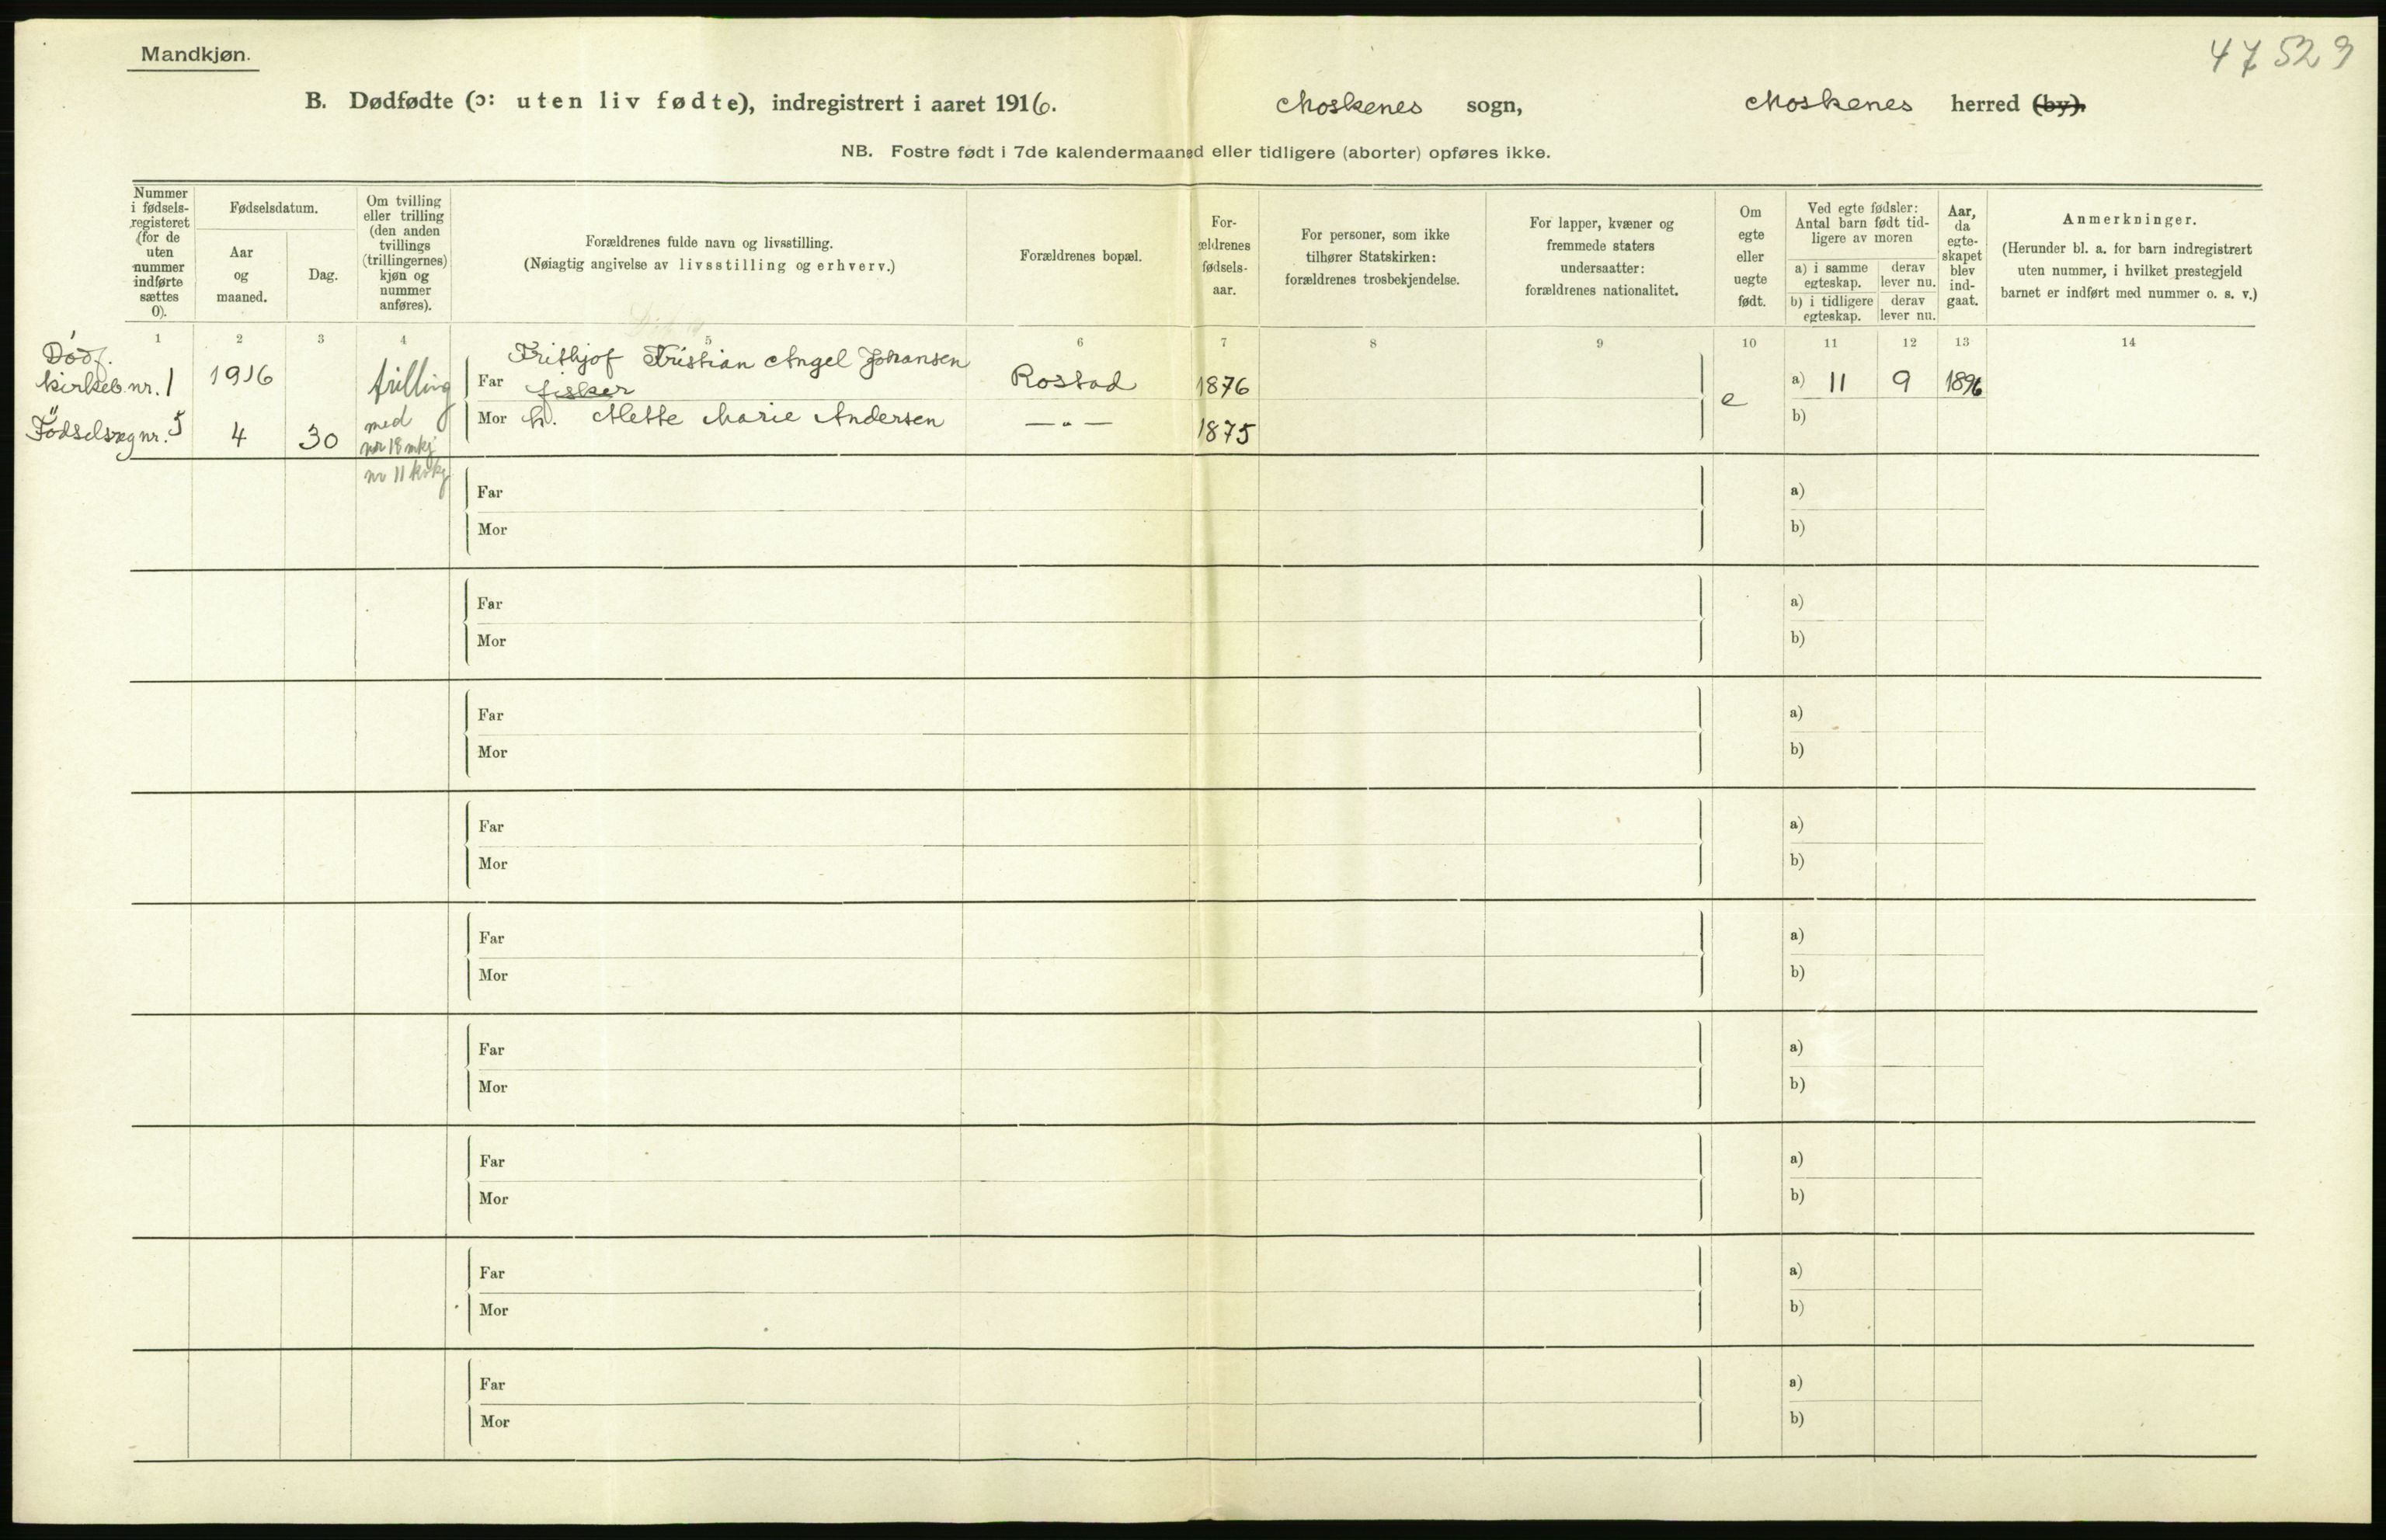 Mandkjøn.
47529
B. Dødfødte (ɔ: uten liv fødte), indregistrert i aaret 1916. Moskenes sogn, Moskenes herred (by).
NB. Fostre født i 7de kalendermaaned eller tidligere (aborter) opføres ikke.
Nummer i fødsels-registeret (for de uten nummer indførte sættes 0).
Fødselsdatum.
Aar og maaned.
Dag.
Om tvilling eller trilling (den anden tvillings (trillingernes) kjøn og nummer anføres).
Forældrenes fulde navn og livsstilling.
(Nøiagtig angivelse av livsstilling og erhverv.)
Forældrenes bopæl.
For-ældrenes fødsels-aar.
For personer, som ikke tilhører Statskirken: forældrenes trosbekjendelse.
For lapper, kvæner og fremmede staters undersaatter: forældrenes nationalitet.
Om egte eller uegte født.
Ved egte fødsler: Antal barn født tid-ligere av moren
a) i samme egteskap. derav lever nu.
b) i tidligere egteskap. derav lever nu.
Aar, da egte-skapet blev ind-gaat.
Anmerkninger.
(Herunder bl. a. for barn indregistrert uten nummer, i hvilket prestegjeld barnet er indført med nummer o. s. v.)
1 2 3 4 5 6 7 8 9 10 11 12 13 14
Dødf. kirkeb. nr. 1
Födselsreg nr. 5
1916
4 30
trilling
med
nr 18 mkj
nr 11 kvkj
Far Frithjof Kristian Angel Johansen
fisker
Rostad 1876
Mor h. Mette Marie Andersen — " — 1875
e
a) 11 9 1896
b)
Far a)
Mor b)
Far a)
Mor b)
Far a)
Mor b)
Far a)
Mor b)
Far a)
Mor b)
Far a)
Mor b)
Far a)
Mor b)
Far a)
Mor b)
Far a)
Mor b)